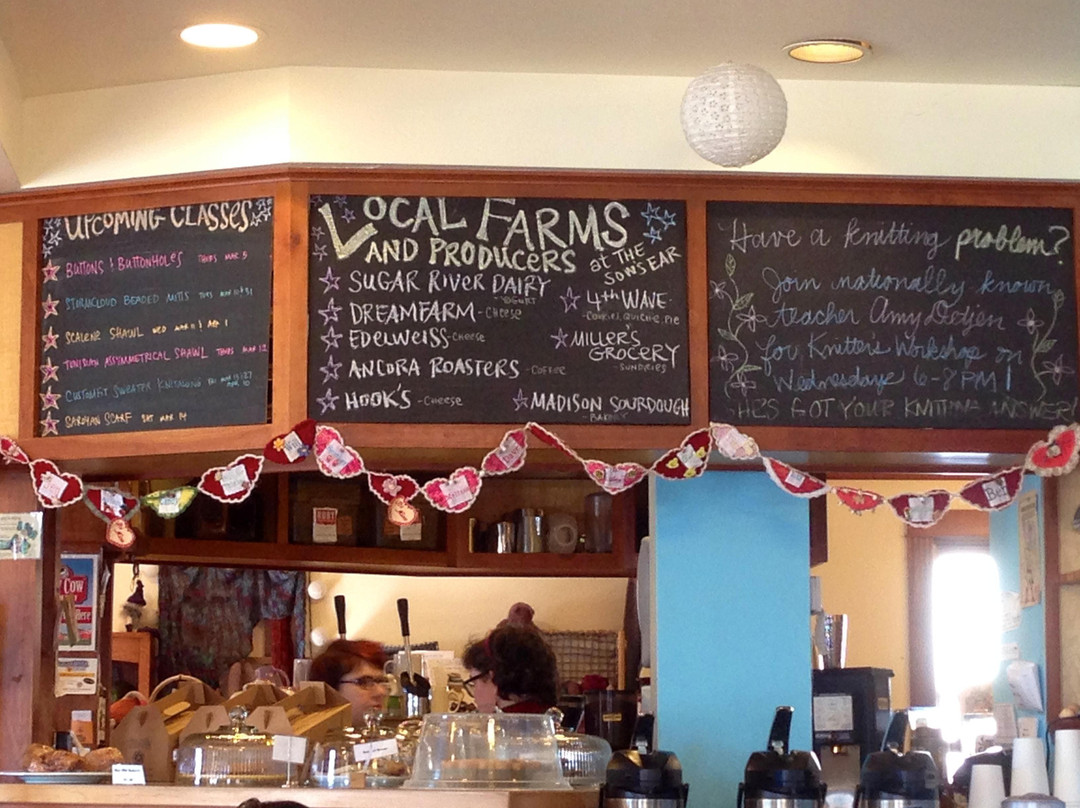 UPCOMING CLASSES
BUTTONS & BUTTONHOLES THURS MAR 5
STORMCLOUD BEADED MITTS TUES MAR 10 & 31
SCALENE SHAWL WED MAR 11 & APR 1
ASSYMMETRICAL SHAWL THURS MAR 12
CUSTOMFIT SWEATER
SAROYAN SCARF SAT MAR 14
LOCAL FARMS
AND PRODUCERS at THE
SOW'S EAR
SUGAR RIVER DAIRY
-YOGURT
DREAMFARM -CHEESE
EDELWEISS -CHEESE
ANCORA ROASTERS -COFFEE
HOOK'S -CHEESE
4th WAVE-
MILLER'S
GROCERY
-SUNDRIES
MADISON SOURDOUGH
Have a knitting problem?
Join nationally known
teacher Amy Detjen
for Knitter's Workshop on
Wednesdays 6-8 PM!
SHE'S GOT YOUR KNITTING ANSWER
Cow